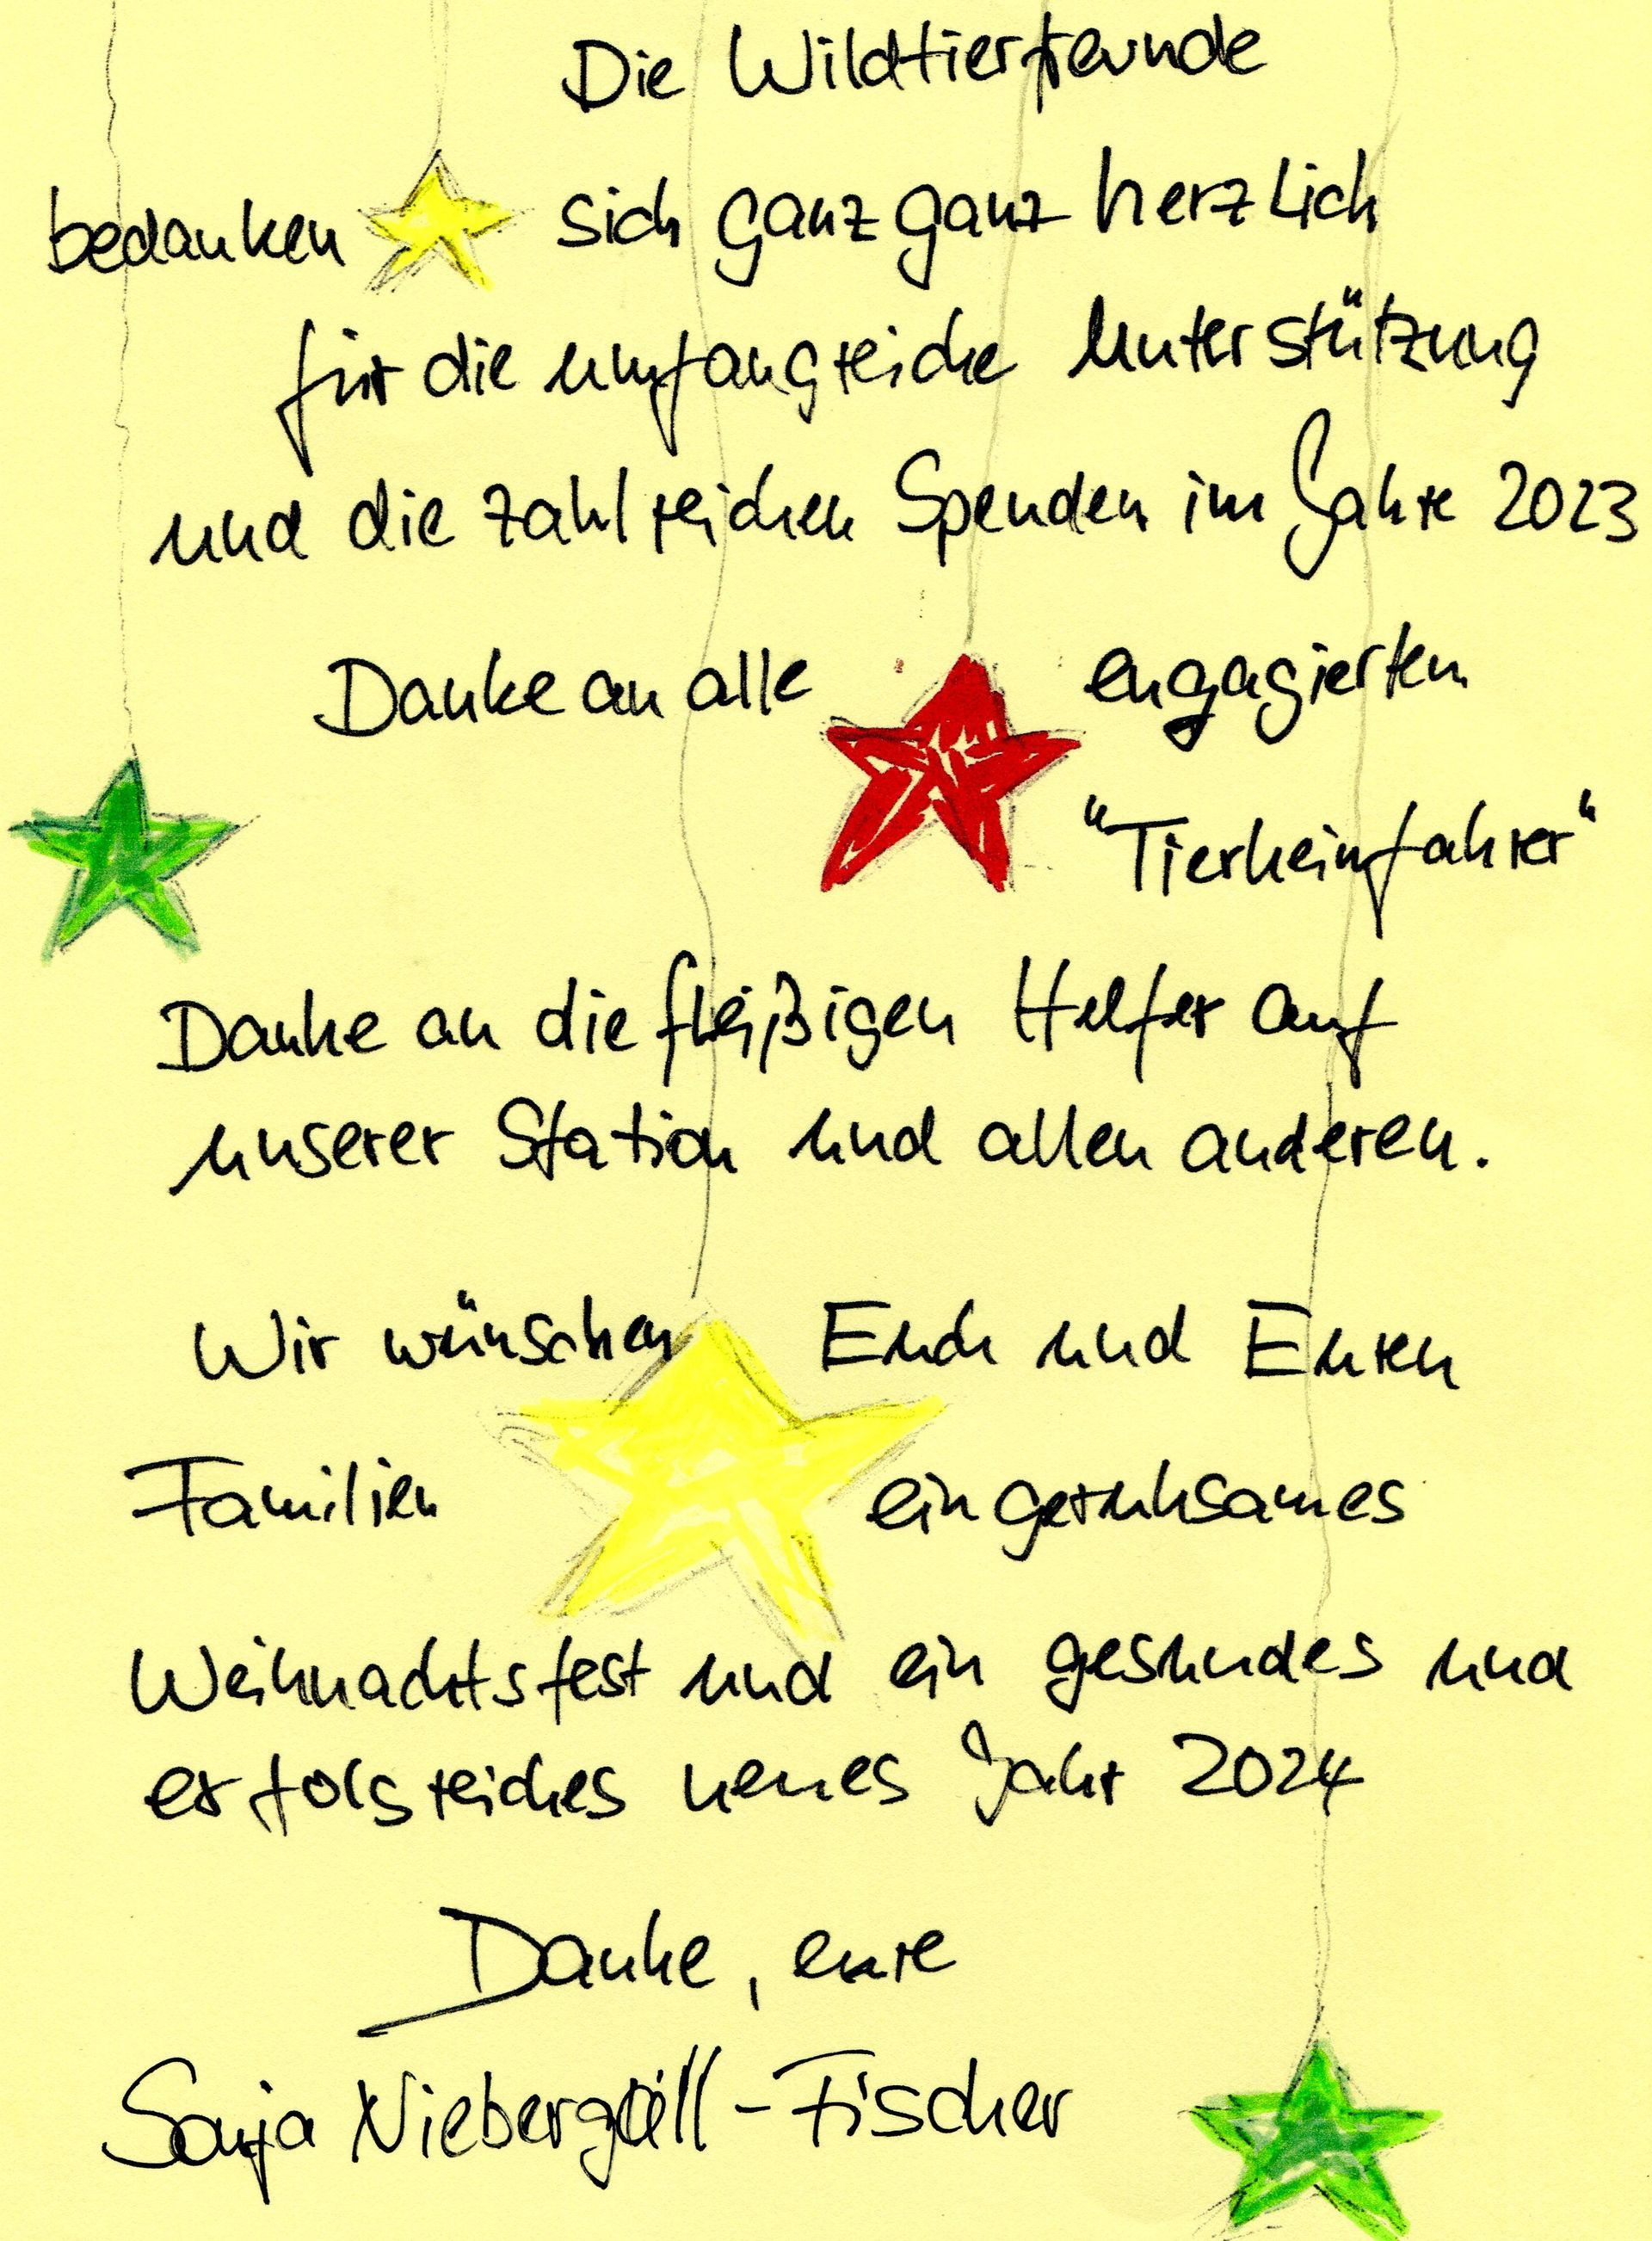 Die Wildtierfreunde
bedanken sich ganz ganz herzlich
für die umfangreiche Unterstützung
und die zahlreichen Spenden im Jahre 2023
Danke an alle engagierten
"Tierheimfahrer"
Danke an die fleißigen Helfer auf
unserer Station und allen anderen.
Wir wünschen Euch und Euren
Familien ein geruhsames
Weihnachtsfest und ein gesundes und
erfolgreiches neues Jahr 2024
Danke, eure
Sonja Niebergall-Fischer